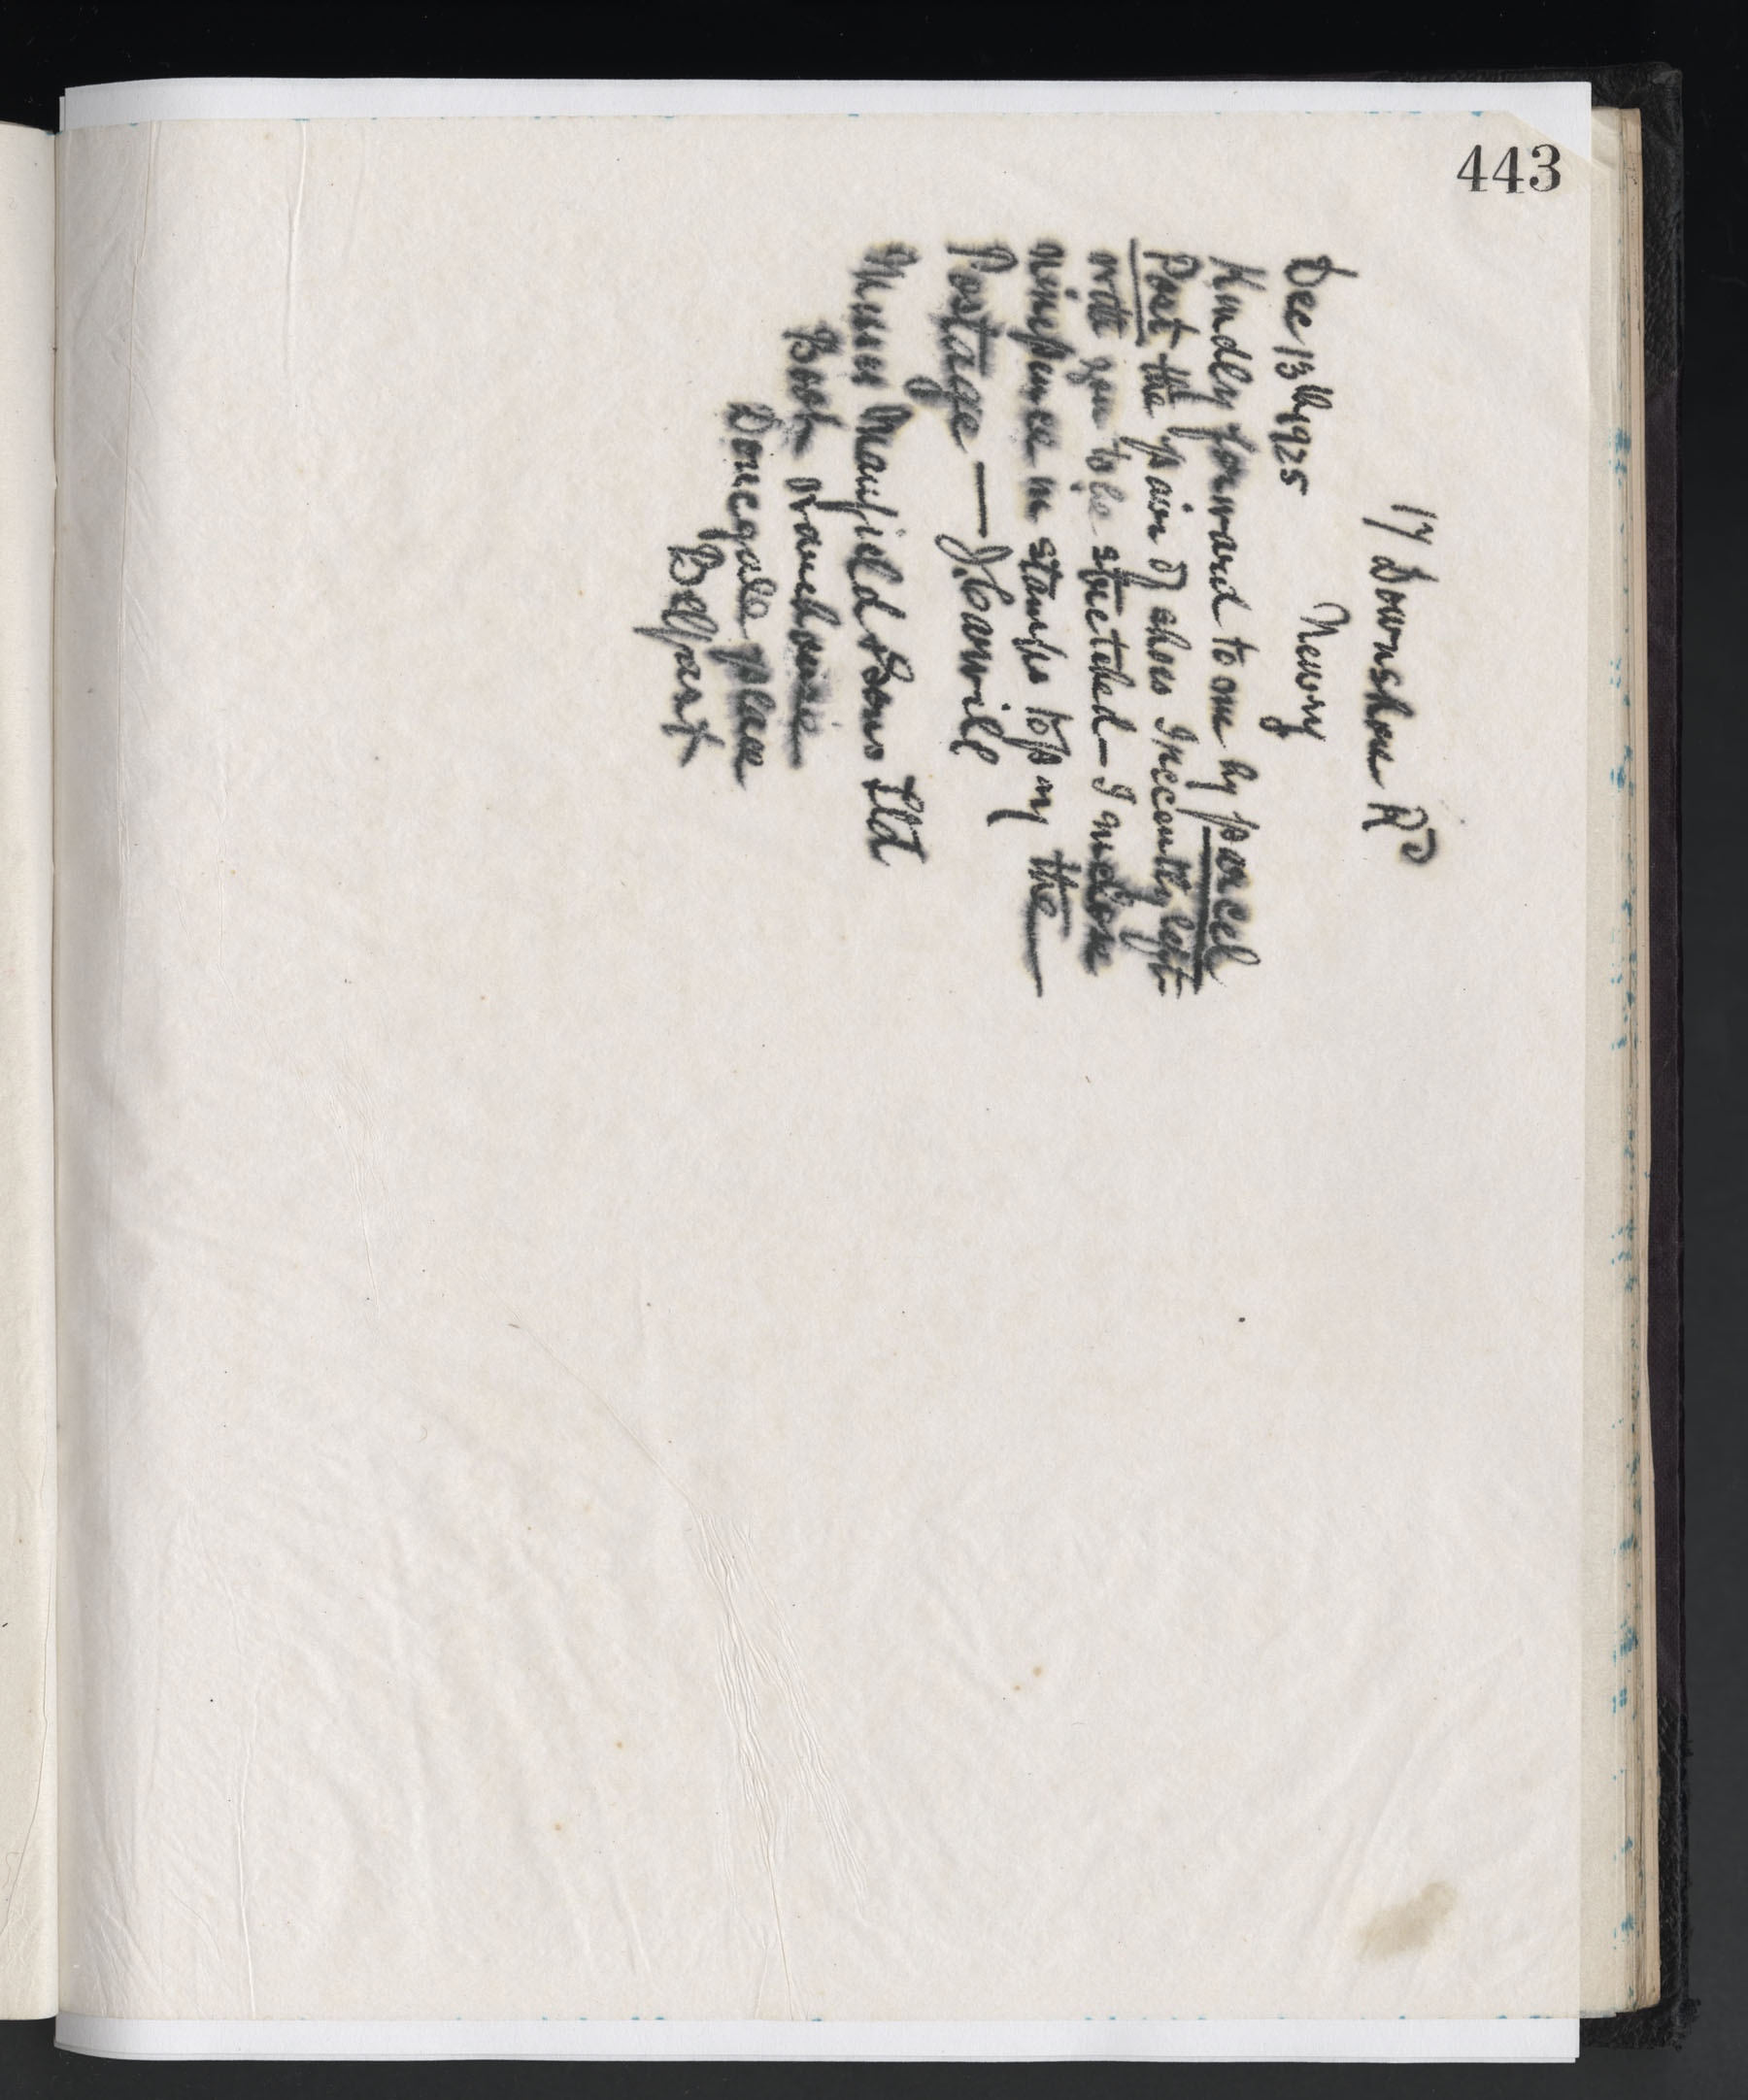 443
17 Downshire Rd
Newry
Dec 13th 1925
Kindly forward to me by parcel
Post the pair of shoes I recently left
with you to be stretched - I enclose
ninepence in stamps to pay the
Postage — J. Carvill
Messrs Manfield & Sons Ltd
Boot Warehouse
Donegall place
Belfast